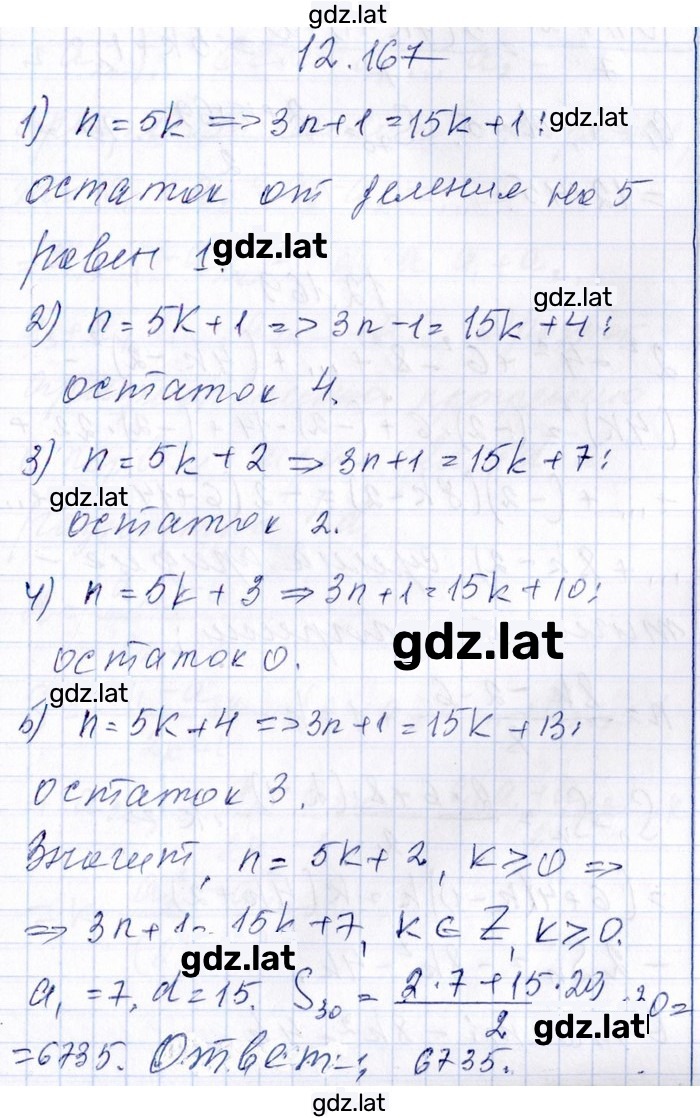 gdz.lat
12.167
1) n = 5k => 3n+1 = 15k+1; gdz.lat
остаток от деления на 5
равен 1. gdz.lat
gdz.lat
2) n = 5k+1 => 3n-1 = 15k+4;
остаток 4.
3) n = 5k+2 => 3n+1 = 15k+7;
gdz.lat
остаток 2.
4) n = 5k+3 => 3n+1 = 15k+10;
gdz.lat
остаток 0.
gdz.lat
5) n = 5k+4 => 3n+1 = 15k+13;
остаток 3.
Значит, n = 5k+2, k⩾0 =>
=> 3n+1 = 15k+7, k ∈ Z, k⩾0.
gdz.lat
a₁ = 7, d = 15. S₃₀ = (2·7+15·29)/2 ·30 =
gdz.lat
= 6735. Ответ: 6735.
gdz.lat